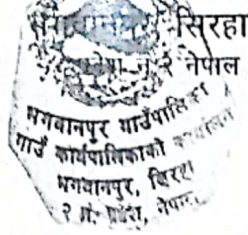 सिरहा
नेपाल
भगवानपुर गाउँपालिका
गाउँ कार्यपालिकाको कार्यालय
भगवानपुर, सिरहा
२ नं. प्रदेश, नेपाल